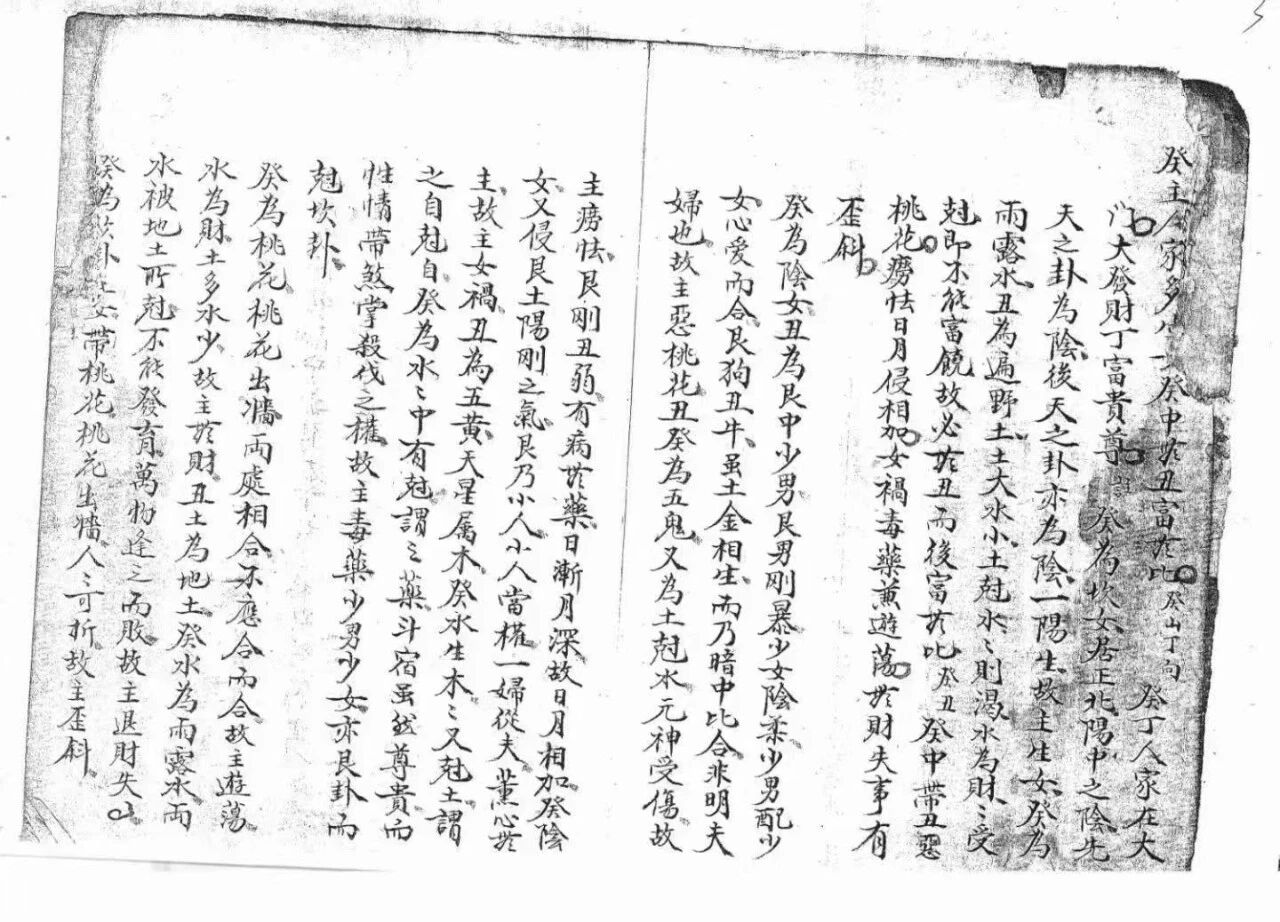 癸主人家多生女癸中於丑富於比癸山丁向 癸丁人家在大
門大發財丁富貴尊 癸為坎女居正北陽中之陰先
天之卦為陰後天之卦亦為陰一陽生故主生女癸為
雨露水丑為遍野土土大水小土尅水〻則渴水為財〻受
尅即不能富饒故必於丑而後富於比癸丑 癸中帶丑惡
桃花癆怯日月侵相加女禍毒藥薰遊蕩於財失事有
歪斜
癸為陰女丑為艮中少男艮男剛暴少女陰柔少男配少
女心愛而合艮狗丑牛虽土金相生而乃暗中比合非明夫
婦也故主惡桃花丑癸為五鬼又為土尅水元神受傷故
主癆怯艮剛丑弱有病於藥日漸月深故日月相加癸陰
女又侵艮土陽剛之氣艮乃小人小人當權一婦從夫薰心於
主故主女禍丑為五黃天星属木癸水生木〻又尅土謂
之自尅自癸為水〻中有尅謂〻藥斗宿虽然尊貴而
性情帶煞掌殺伐之權故主毒藥少男少女亦艮卦而
尅坎卦
癸為桃花桃花出墻兩處相合不應合而合故主遊蕩
水為財土多水少故主於財丑土為地土癸水為雨露水雨
水被地土所尅不能發育萬物逢之而敗故主退財失
癸為坎卦女帶桃花桃花出墻人〻可折故主歪斜